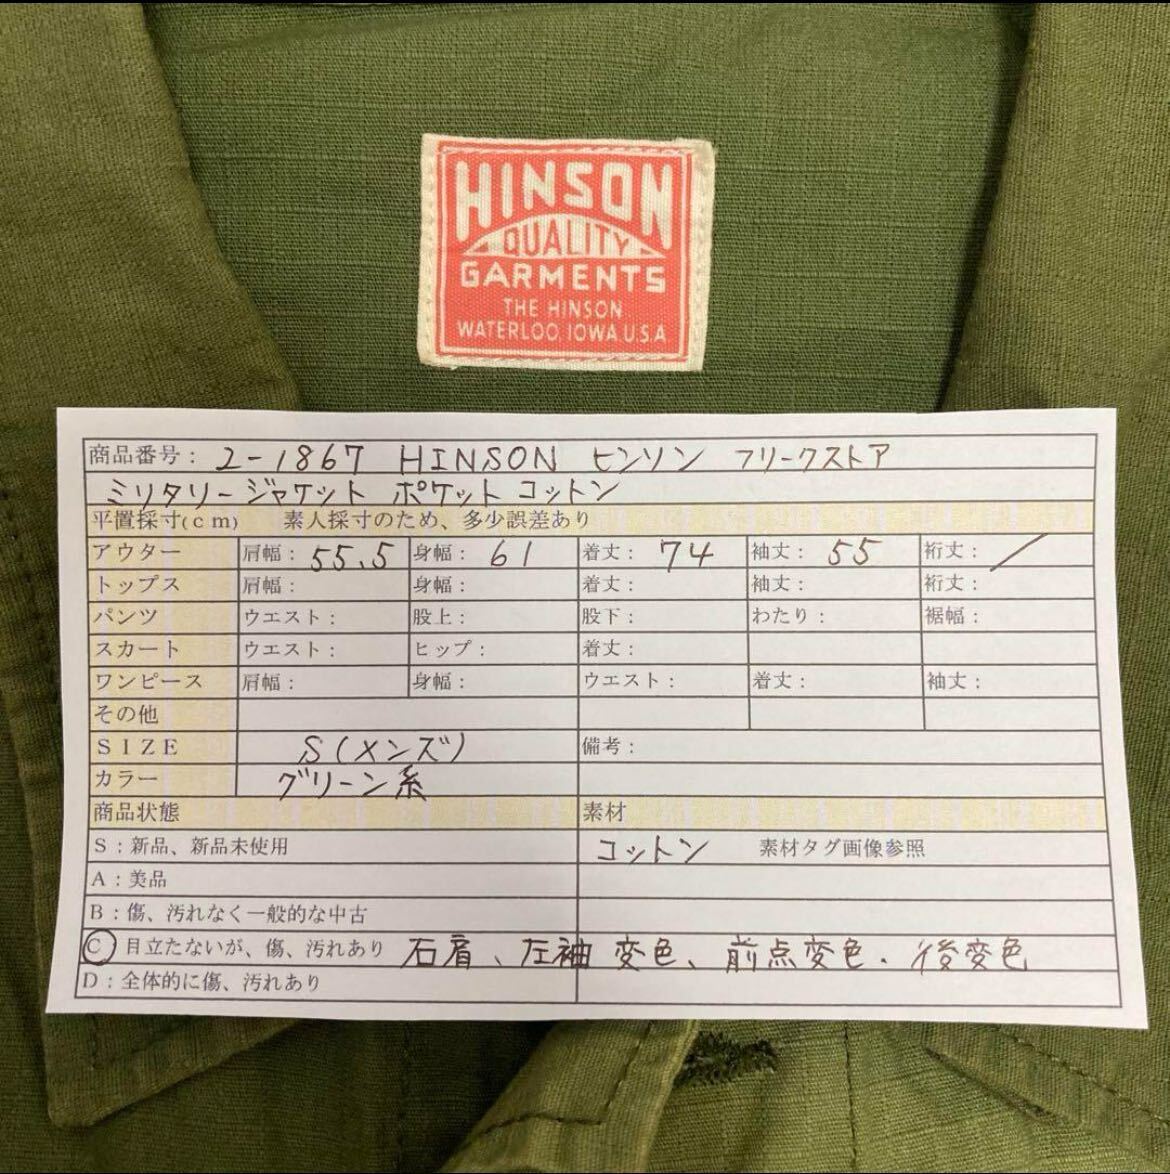 HINSON
QUALITY
GARMENTS
THE HINSON
WATERLOO.IOWA.U.S.A
商品番号： 2-1867 HINSON ヒンソン フリークストア
ミリタリージャケット ポケット コットン
平置採寸(ｃｍ) 素人採寸のため、多少誤差あり
アウター 肩幅： 55.5 身幅： 61 着丈： 74 袖丈： 55 裄丈： /
トップス 肩幅： 身幅： 着丈： 袖丈： 裄丈：
パンツ ウエスト： 股上： 股下： わたり： 裾幅：
スカート ウエスト： ヒップ： 着丈：
ワンピース 肩幅： 身幅： ウエスト： 着丈： 袖丈：
その他
ＳＩＺＥ S(メンズ) 備考：
カラー グリーン系
商品状態 素材
Ｓ：新品、新品未使用 コットン 素材タグ画像参照
Ａ：美品
Ｂ：傷、汚れなく一般的な中古
Ｃ 目立たないが、傷、汚れあり 右肩、左袖 変色、前点変色.後変色
Ｄ：全体的に傷、汚れあり